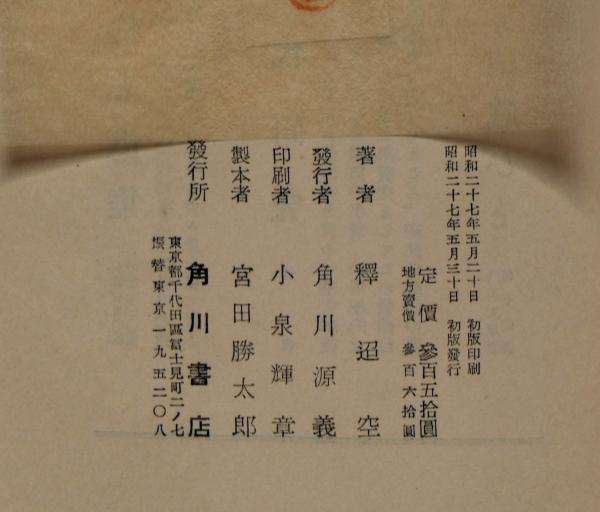 昭和二十七年五月二十日　初版印刷
昭和二十七年五月三十日　初版發行
定價　參百五拾圓
地方賣價　參百六拾圓
著者　釋迢空
發行者　角川源義
印刷者　小泉輝章
製本者　宮田勝太郎
發行所　角川書店
東京都千代田區富士見町二ノ七
振替東京一九五二〇八